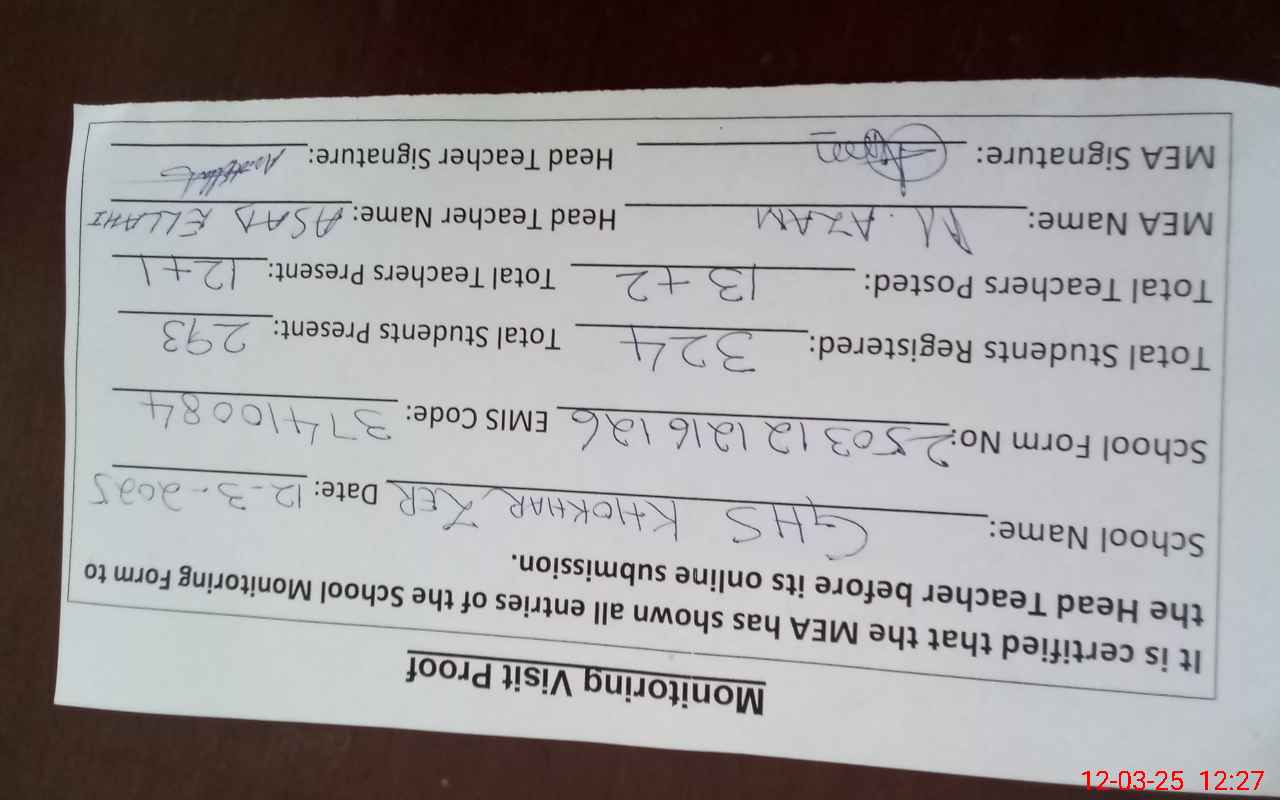 Monitoring Visit Proof
It is certified that the MEA has shown all entries of the School Monitoring Form to
the Head Teacher before its online submission.
School Name: GHS KHOKHAR ZER Date: 12-3-2025
School Form No: 2503121216126 EMIS Code: 37410084
Total Students Registered: 324 Total Students Present: 293
Total Teachers Posted: 13+2 Total Teachers Present: 12+1
MEA Name: M. AZAM Head Teacher Name: ASAD ELLAHI
MEA Signature: Head Teacher Signature:
12-03-25 12:27